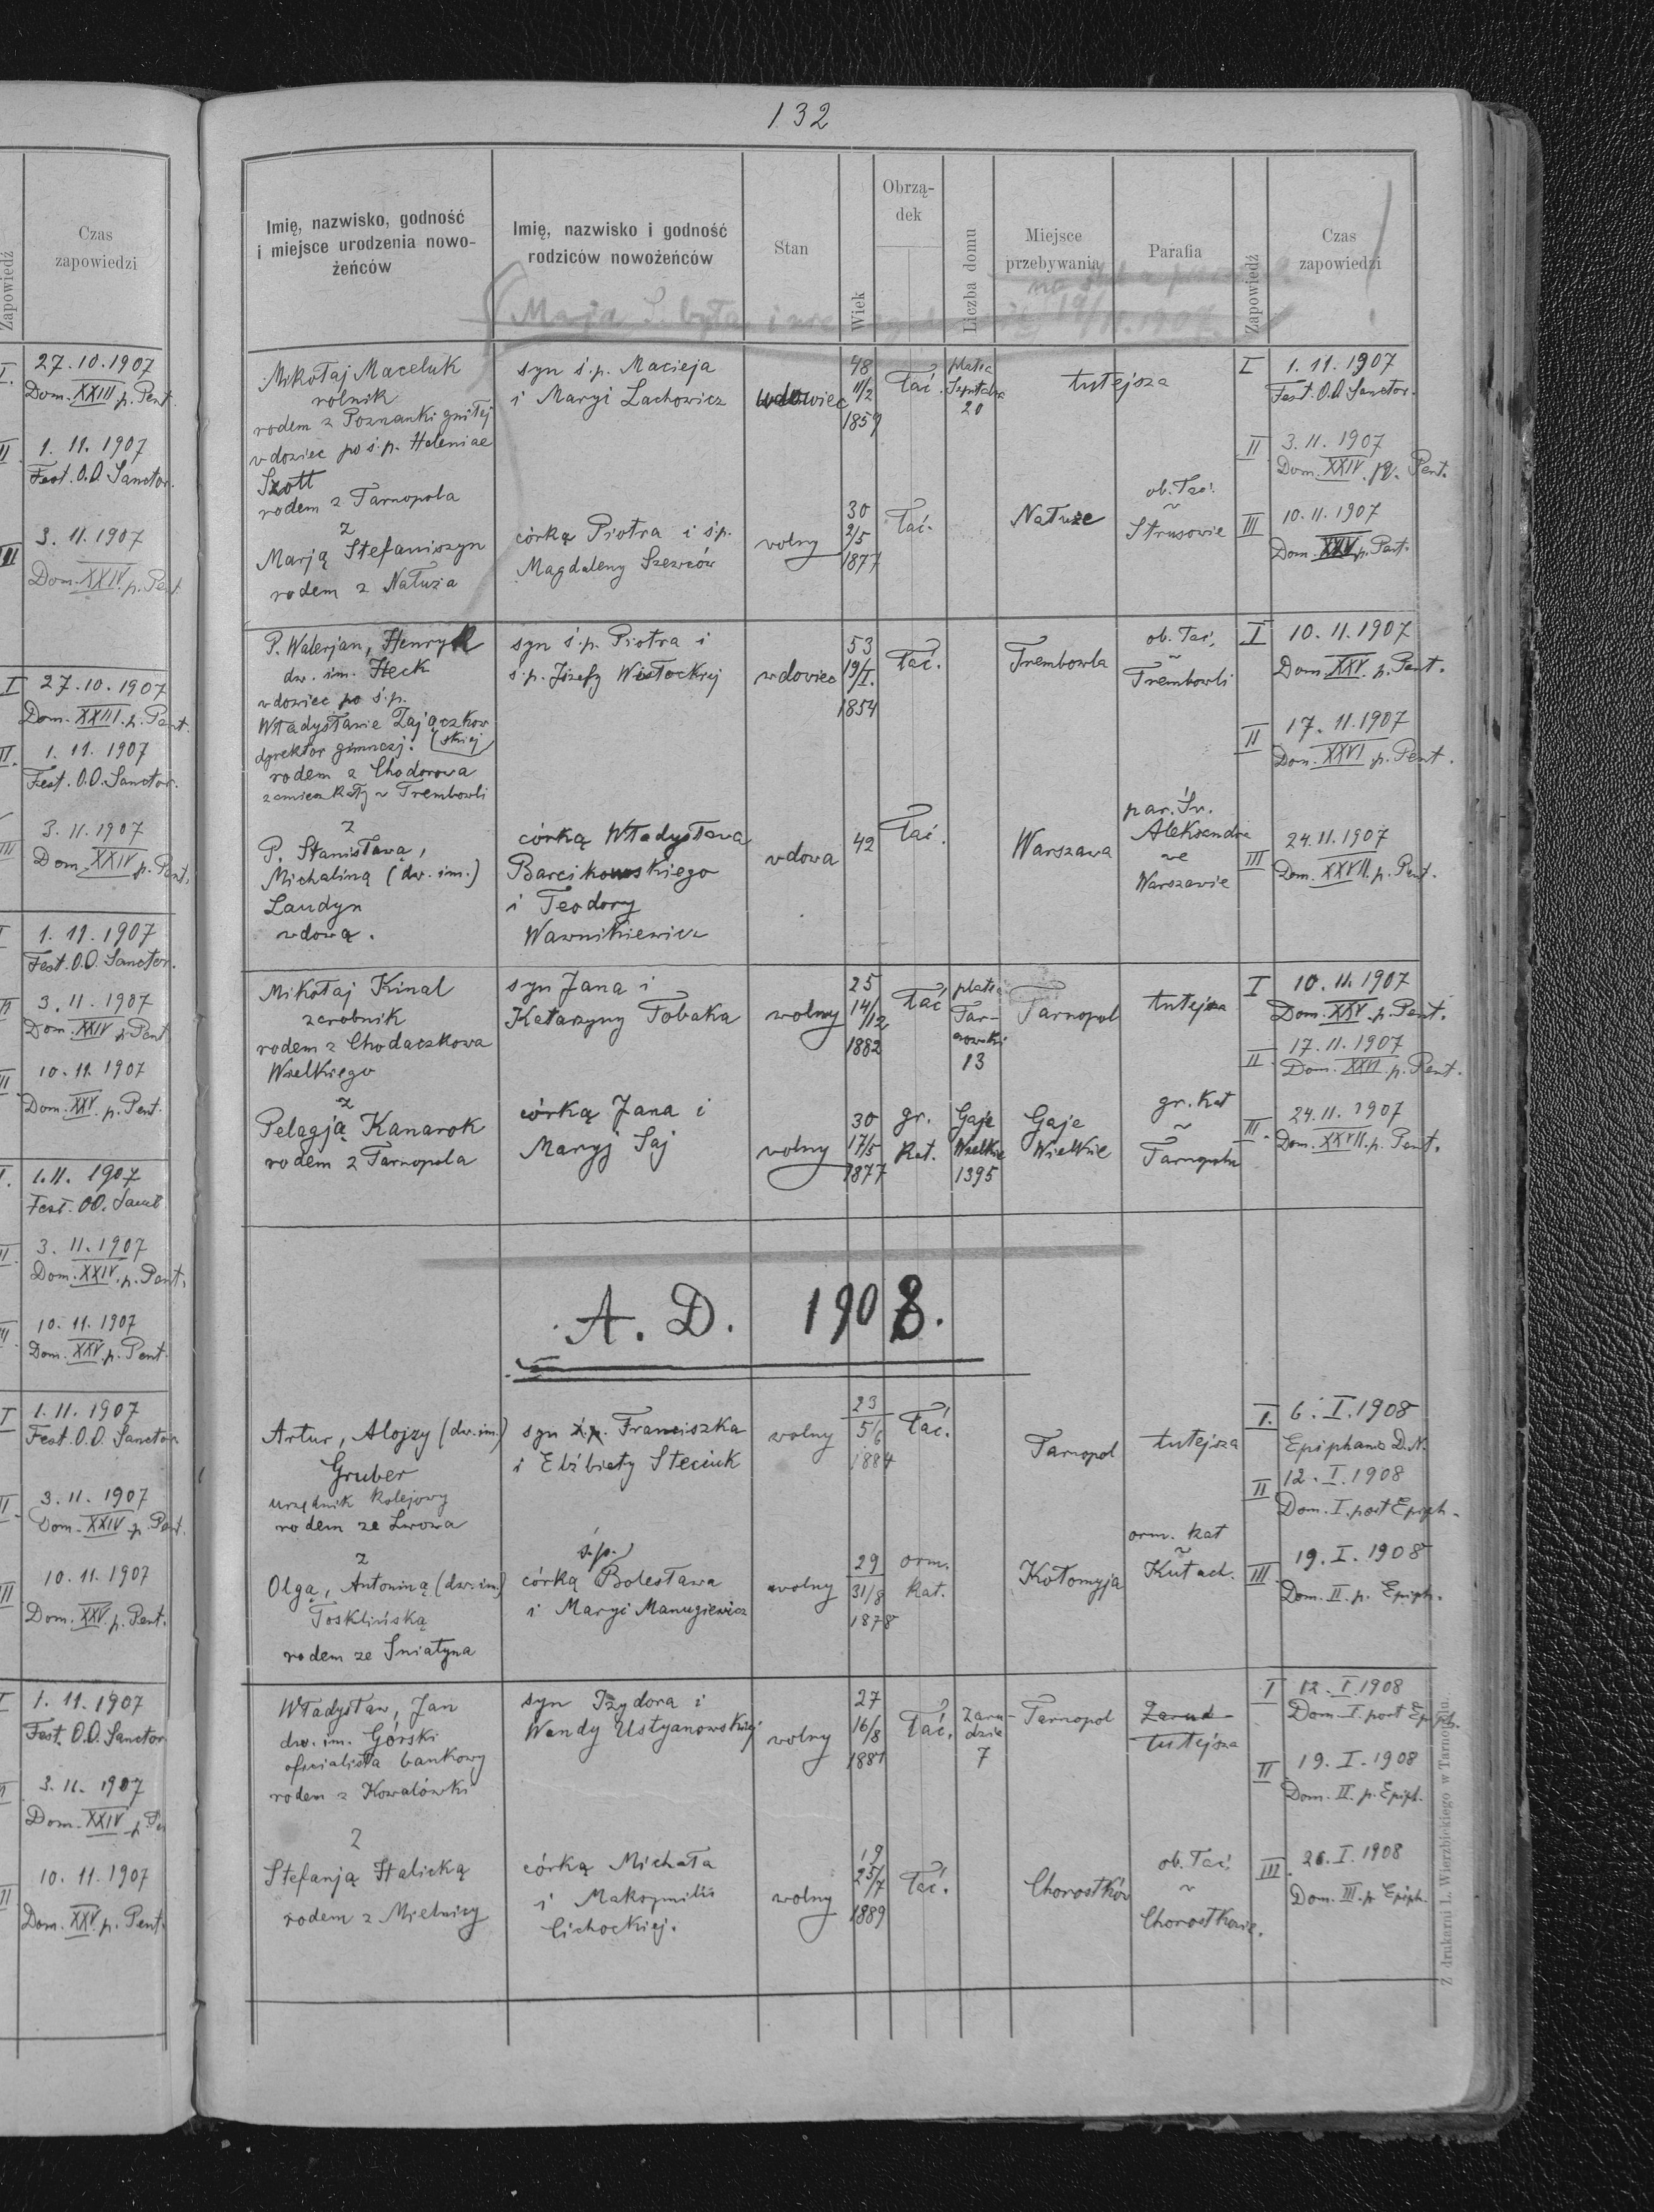 132
Zapowiedź
Czas
zapowiedzi
I.
27.10.1907
Dom. XXIII p. Pent.
II
1. 11. 1907
Fest. O.O. Sanctor.
III
3. 11. 1907
Dom. XXIV. p. Pent.
I
27.10.1907
Dom. XXIII. p. Pent.
II.
1. 11. 1907
Fest. O.O. Sanctor.
III
3. 11. 1907
Dom. XXIV p. Pent.
I
1. 11. 1907
Fest. O.O. Sanctor.
II
3. 11. 1907
Dom. XXIV p. Pent
II
10. 11. 1907
Dom. XXV. p. Pent.
I.
1.11. 1907
Fest. OO. Sanct
II.
3. 11. 1907
Dom. XXIV. p. Pent.
III
10. 11. 1907
Dom. XXV. p. Pent.
I
1.11. 1907
Fest. O.O. Sanctor
II
3. 11. 1907
Dom. XXIV p. Pent.
III
10. 11. 1907
Dom. XXV. p. Pent.
I
1. 11. 1907
Fest. O.O. Sanctor
II
3. 11. 1907
Dom. XXIV p. Pe
II
10. 11. 1907
Dom. XXV. p. Pent.
Imię, nazwisko, godność
i miejsce urodzenia nowo-
żeńców
Imię, nazwisko i godność
rodziców nowożeńców
Stan
Wiek
Obrzą-
dek
Liczba domu
Miejsce
przebywania
Parafia
Zapowiedź
Czas
zapowiedzi
19/11.1907.
Mikołaj Maceluk
rolnik
rodem z Poznanki gniłej
wdowiec po ś.p. Heleniae
Szott
rodem z Tarnopola
syn ś.p. Macieja
i Maryi Lachowicz
wdowiec
48
11/2
1859
łać.
platea
Szpitalna
20
tutejsza
I
1. 11. 1907
Fest. O.O. Sanctor.
II
3. 11. 1907
Dom. XXIV. p. Pent.
z
Marją Stefaniszyn
rodem z Nałuża
córką Piotra i ś.p.
Magdaleny Szewców
wolny
30
2/5
1877
łać.
Nałuże
ob. łać.
~
Strusowie
III
10. 11. 1907
Dom. XXV p. Pent.
P. Walerjan, Henryk
dw. im. Heck
wdowiec po ś.p.
Władysławie Zajączkow
dyrektor gimnazj. (skiej)
rodem z Chodorowa
zamieszkały w Trembowli
syn ś.p. Piotra i
ś.p. Józefy Wisłockiej
wdowiec
53
19/I.
1854
łać.
Trembowla
ob. łać.
~
Trembowli
I
10. 11. 1907
Dom. XXV. p. Pent.
II
17. 11. 1907
Dom. XXVI p. Pent.
z
P. Stanisławą,
Michaliną (dw. im.)
Laudyn
wdową.
córką Władysława
Barcikowskiego
i Teodory
Wawnikiewicz
wdowa
42
łać.
Warszawa
par. Św.
Aleksandra
we
Warszawie
III
24.11.1907
Dom. XXVII. p. Pent.
Mikołaj Kinal
zarobnik
rodem z Chodaczkowa
Wielkiego
syn Jana i
Katarzyny Tobaka
wolny
25
14/12
1882
łać
platea
Tar-
nowski
13
Tarnopol
tutejsza
I
10. 11. 1907
Dom. XXV. p. Pent.
II
17. 11. 1907
Dom. XXVI. p. Pent.
z
Pelagją Kanarok
rodem z Tarnopola
córką Jana i
Maryj Saj
wolny
30
17/5
1877
gr.
kat.
Gaje
Wielkie
1395
Gaje
Wielkie
gr. kat
~
Tarnopolu
III.
24. 11. 1907
Dom. XXVII. p. Pent.
A. D. 1908.
Artur, Alojzy (dw. im.)
Gruber
urzędnik kolejowy
rodem ze Lwowa
syn ś.p. Franciszka
i Elżbiety Steciuk
wolny
23
5/6
1884
łać.
Tarnopol
tutejsza
I.
6. I. 1908
Epiphania D.N.
II
12. I. 1908
Dom. I. post Epiph.
z
Olgą, Antoniną (dw. im.)
Tosklińską
rodem ze Śniatyna
ś.p.
córką Bolesława
i Maryi Manugiewicz
wolny
29
31/8
1878
orm.
kat.
Kołomyja
orm. kat
~
Kutach.
III.
19. I. 1908
Dom. II. p. Epiph.
Władysław, Jan
dw. im. Górski
oficialista bankowy
rodem z Kowalówki
syn Izydora i
Wandy Ustyanowskiej
wolny
27
16/8
1881
łać.
Zaru-
dzie
7
Tarnopol
Zarud
tutejsza
I
12. I. 1908
Dom. I. post Epiph.
II
19. I. 1908
Dom. II. p. Epiph.
z
Stefanją Halicką
rodem z Mielnicy
córką Michała
i Maksymilii
Cichockiej.
wolny
19
25/7
1889
łać.
Chorostków
ob. łać.
~
Chorostkowie.
III
26. I. 1908
Dom. III. p. Epiph.
Z drukarni L. Wierzbickiego w Tarnopolu.